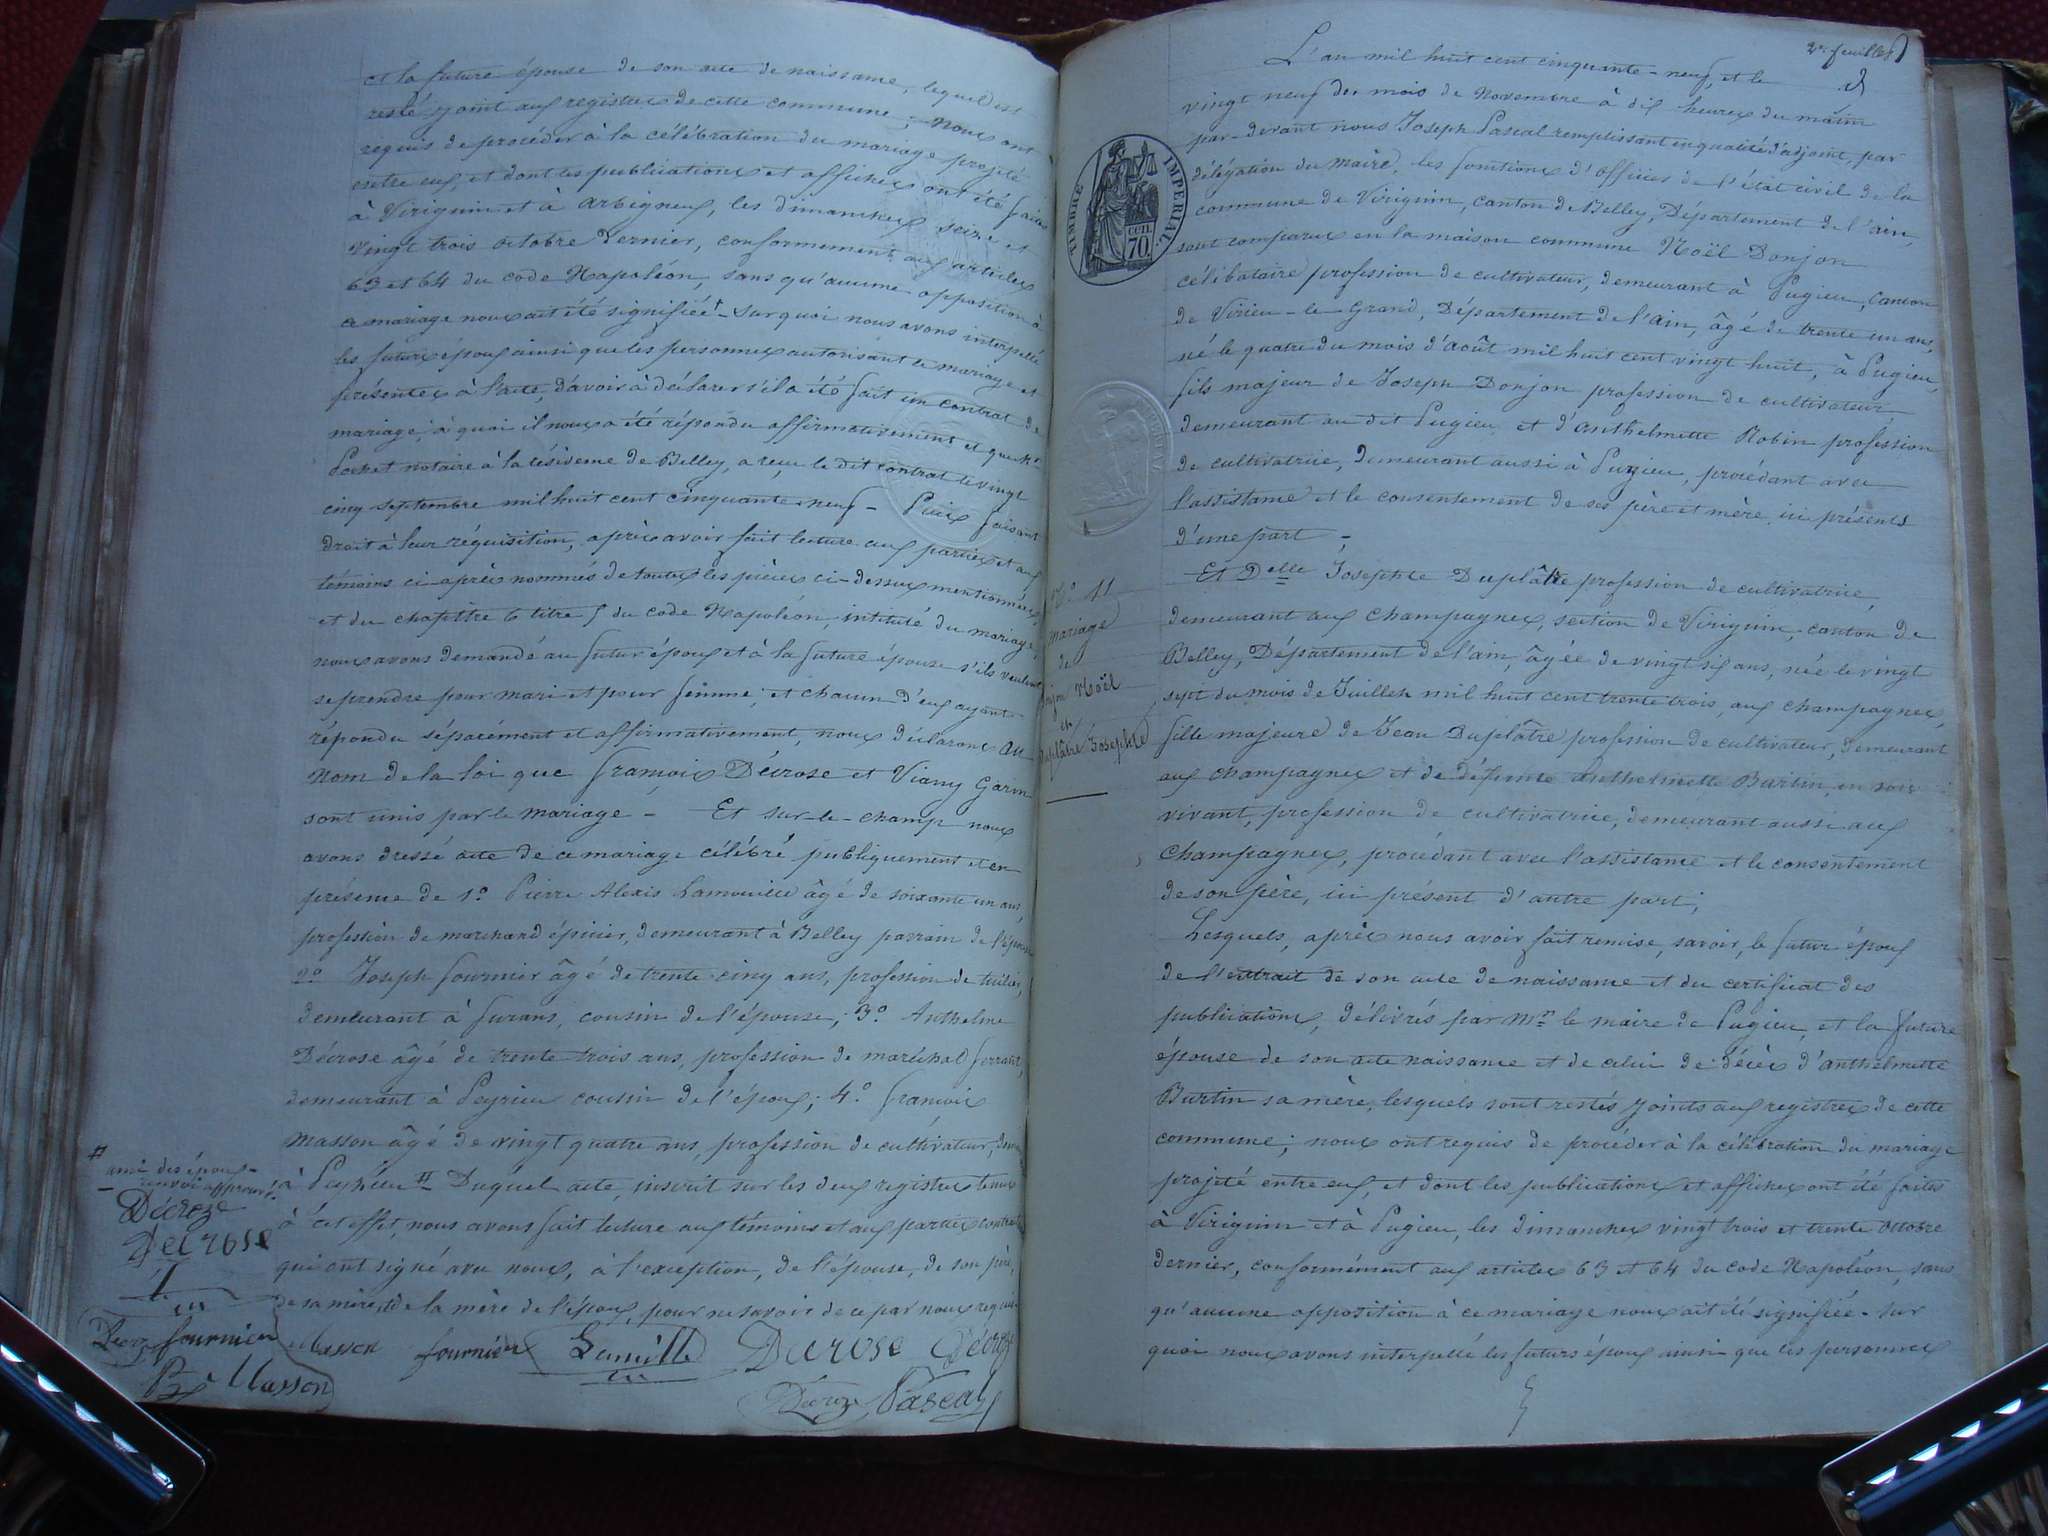 et la future épouse de son acte de naissance, lequel est
resté joint aux registres de cette commune; nous ont
requis de procéder à la célébration du mariage projeté
entre eux, et dont les publications et affiches ont été faites
à Virignin et à Arbignieu, les dimanches seize et
vingt trois octobre dernier, conformément aux articles
63 et 64 du code Napoléon, sans qu'aucune opposition à
ce mariage nous ait été signifiée - Sur quoi nous avons interpellé
les futurs époux ainsi que les personnes autorisant le mariage et
présentes à l'acte, d'avoir à déclarer s'il a été fait un contrat de
mariage, à quoi il nous a été répondu affirmativement et que Me
Pochet notaire à la résidence de Belley, a reçu le dit contrat le vingt
cinq septembre mil huit cent cinquante-neuf - Puis faisant
droit à leur réquisition, après avoir fait lecture aux parties et aux
témoins ci-après nommés de toutes les pièces ci-dessus mentionnées,
et du chapitre 6 titre 5 du code Napoléon, intitulé du mariage,
nous avons demandé au futur époux et à la future épouse s'ils veulent
se prendre pour mari et pour femme; et chacun d'eux ayant
répondu séparément et affirmativement, nous déclarons au
nom de la loi que François Décrose et Viany Garin
sont unis par le mariage - Et sur-le-champ nous
avons dressé acte de ce mariage célébré publiquement et en
présence de 1º Pierre Alexis Lamouille âgé de soixante un ans,
profession de marchand épicier, demeurant à Belley parrain de l'épouse
2º Joseph Fournier âgé de trente-cinq ans, profession de tuilier,
demeurant à Furans, cousin de l'épouse; 3º Anthelme
Décrose âgé de trente-trois ans, profession de maréchal ferrant,
demeurant à Peyrieu cousin de l'époux; 4º François
Masson âgé de vingt quatre ans, profession de cultivateur,
à Peyrieu # Duquel acte, inscrit sur les deux registres tenus
à cet effet, nous avons fait lecture aux témoins et aux parties
qui ont signé avec nous, à l'exception, de l'épouse, de son père,
de sa mère, et de la mère de l'époux, pour ne savoir de ce par nous requis
# ami des époux-
renvoi approuvé.
Décroze
Decrose
fournier
Masson
Masson fournier Lamouille Decrose Décroze
Décroze Pascal
2e feuillet
L'an mil huit cent cinquante-neuf, et le
vingt neuf du mois de Novembre à dix heures du matin
par-devant nous Joseph Pascal remplissant en qualité d'adjoint, par
délégation du maire, les fonctions d'officier de l'état civil de la
commune de Virignin, canton de Belley, Département de l'ain,
sont comparus en la maison commune Noël Donjon
célibataire profession de cultivateur, demeurant à Pugieu, canton
de Virieu-le-Grand, Département de l'ain, âgé de trente un ans,
né le quatre du mois d'août mil huit cent vingt huit, à Pugieu,
fils majeur de Joseph Donjon profession de cultivateur
demeurant au dit Pugieu et d'anthelmette Robin profession
de cultivatrice, demeurant aussi à Pugieu, procédant avec
l'assistance et le consentement de ses père et mère, ici présents
d'une part;
Et Delle Josephte Duplâtre profession de cultivatrice,
demeurant aux Champagnes, section de Virignin, canton de
Belley, Département de l'ain, âgée de vingt six ans, née le vingt
sept du mois de Juillet mil huit cent trente trois, aux Champagnes,
fille majeure de Jean Duplâtre profession de cultivateur, demeurant
aux Champagnes et de défunte Anthelmette Burtin, en son
vivant, profession de cultivatrice, demeurant aussi aux
Champagnes, procédant avec l'assistance et le consentement
de son père, ici présent d'autre part;
Lesquels, après nous avoir fait remise, savoir, le futur époux
de l'extrait de son acte de naissance et du certificat des
publications, délivrés par Mr le maire de Pugieu, et la future
épouse de son acte naissance et de celui de décès d'anthelmette
Burtin sa mère, lesquels sont restés joints aux registres de cette
commune; nous ont requis de procéder à la célébration du mariage
projeté entre eux, et dont les publications et affiches ont été faites
à Virignin et à Pugieu, les dimanches vingt trois et trente octobre
dernier, conformément aux articles 63 et 64 du code Napoléon, sans
qu'aucune opposition à ce mariage nous ait été signifiée. Sur
quoi nous avons interpellé les futurs époux ainsi que les personnes
TIMBRE IMPERIAL
CEN. 70
No 11
Mariage
de
Donjon Noël
et
Duplâtre Josephte